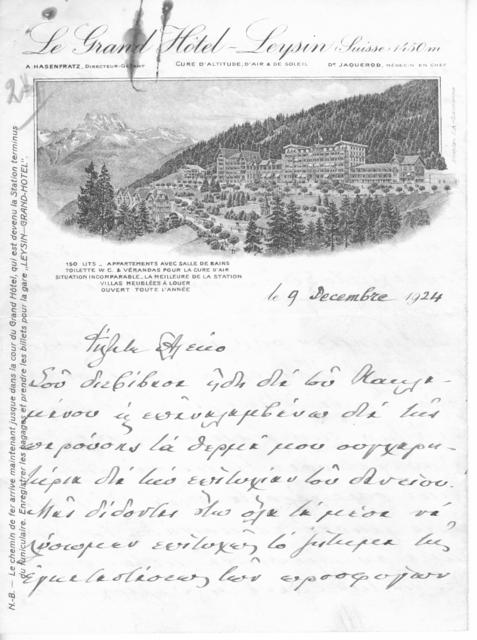 Le Grand Hôtel - Leysin (Suisse) 1450 m
A. HASENFRATZ, DIRECTEUR-GÉRANT
CURE D'ALTITUDE, D'AIR & DE SOLEIL
Dr JAQUEROD, MÉDECIN EN CHEF
150 LITS _ APPARTEMENTS AVEC SALLE DE BAINS
TOILETTE W.C. & VÉRANDAS POUR LA CURE D'AIR
SITUATION INCOMPARABLE, LA MEILLEURE DE LA STATION
VILLAS MEUBLÉES À LOUER
OUVERT TOUTE L'ANNÉE
N.-B. — Le chemin de fer arrive maintenant jusque dans la cour du Grand Hôtel, qui est devenu la Station terminus
du funiculaire. Enregistrer les bagages et prendre les billets pour la gare „LEYSIN-GRAND-HOTEL"
le 9 Decembre 1924
Φίλτατε Αλέκο
Σοῦ διεβίβασα ἤδη διὰ τοῦ
μένου κ ἐπαναλαμβάνω διὰ τῆς
παρούσης τὰ θερμά μου συγχαρη-
τήρια διὰ την ἐπιτυχίαν τοῦ δανείου.
Μᾶς δίδονται ὅλα τὰ μέσα νὰ
λύσωμεν ἐπιτυχῶς τὸ ζήτημα τῆς
ἐγκαταστάσεως τῶν προσφύγων